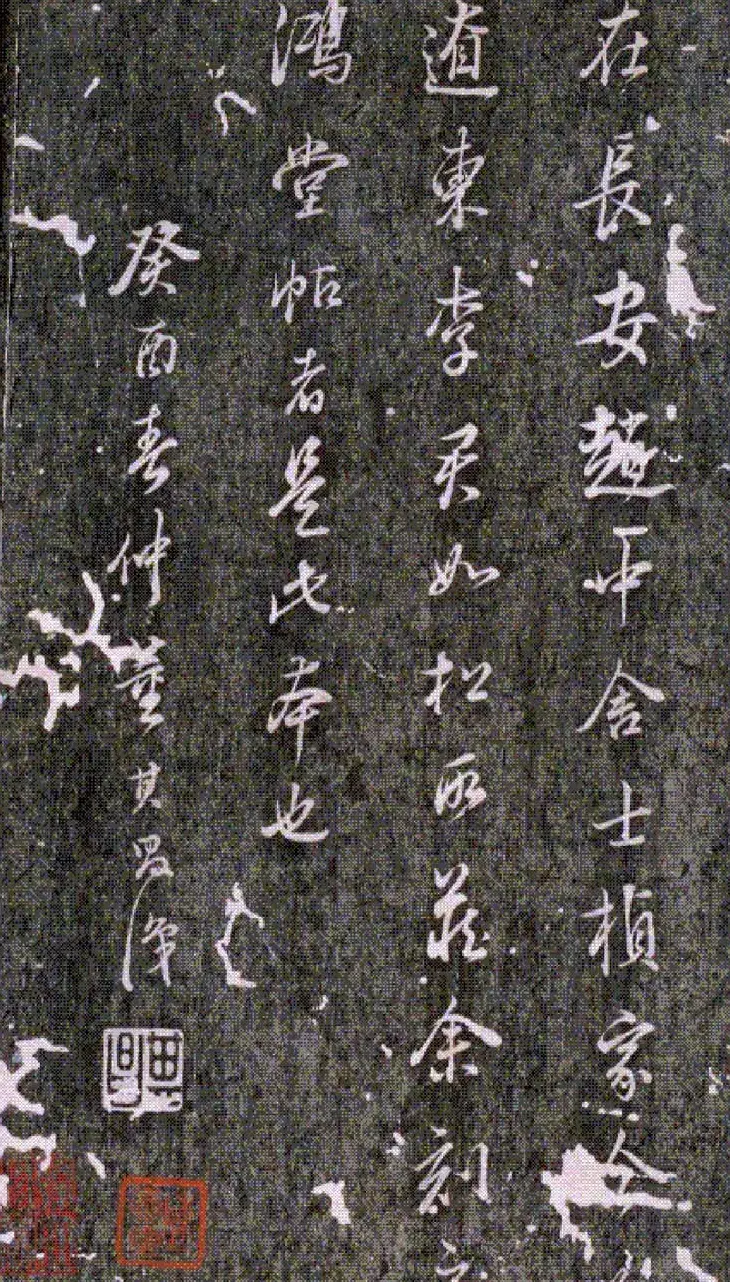 在長安趙中舍士楨家今
遼東李君如松所藏余刻
鴻堂帖者是此本也
癸酉春仲董其昌識